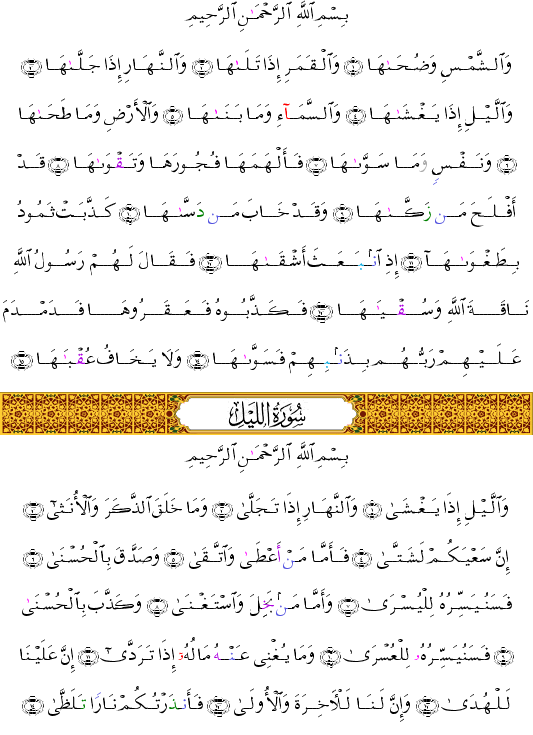 بِسْمِ ٱللَّهِ ٱلرَّحْمَـٰنِ ٱلرَّحِيمِ
وَٱلشَّمْسِ وَضُحَىٰهَا ۝١ وَٱلْقَمَرِ إِذَا تَلَىٰهَا ۝٢ وَٱلنَّهَارِ إِذَا جَلَّىٰهَا ۝٣
وَٱلَّيْلِ إِذَا يَغْشَىٰهَا ۝٤ وَٱلسَّمَآءِ وَمَا بَنَىٰهَا ۝٥ وَٱلْأَرْضِ وَمَا طَحَىٰهَا
۝٦ وَنَفْسٍ وَمَا سَوَّىٰهَا ۝٧ فَأَلْهَمَهَا فُجُورَهَا وَتَقْوَىٰهَا ۝٨ قَدْ
أَفْلَحَ مَن زَكَّىٰهَا ۝٩ وَقَدْ خَابَ مَن دَسَّىٰهَا ۝١٠ كَذَّبَتْ ثَمُودُ
بِطَغْوَىٰهَآ ۝١١ إِذِ ٱنۢبَعَثَ أَشْقَىٰهَا ۝١٢ فَقَالَ لَهُمْ رَسُولُ ٱللَّهِ
نَاقَةَ ٱللَّهِ وَسُقْيَـٰهَا ۝١٣ فَكَذَّبُوهُ فَعَقَرُوهَا فَدَمْدَمَ
عَلَيْهِمْ رَبُّهُم بِذَنۢبِهِمْ فَسَوَّىٰهَا ۝١٤ وَلَا يَخَافُ عُقْبَـٰهَا ۝١٥
سُورَةُ اللَّيْلِ
بِسْمِ ٱللَّهِ ٱلرَّحْمَـٰنِ ٱلرَّحِيمِ
وَٱلَّيْلِ إِذَا يَغْشَىٰ ۝١ وَٱلنَّهَارِ إِذَا تَجَلَّىٰ ۝٢ وَمَا خَلَقَ ٱلذَّكَرَ وَٱلْأُنثَىٰٓ ۝٣
إِنَّ سَعْيَكُمْ لَشَتَّىٰ ۝٤ فَأَمَّا مَنْ أَعْطَىٰ وَٱتَّقَىٰ ۝٥ وَصَدَّقَ بِٱلْحُسْنَىٰ ۝٦
فَسَنُيَسِّرُهُۥ لِلْيُسْرَىٰ ۝٧ وَأَمَّا مَنۢ بَخِلَ وَٱسْتَغْنَىٰ ۝٨ وَكَذَّبَ بِٱلْحُسْنَىٰ
۝٩ فَسَنُيَسِّرُهُۥ لِلْعُسْرَىٰ ۝١٠ وَمَا يُغْنِى عَنْهُ مَالُهُۥٓ إِذَا تَرَدَّىٰٓ ۝١١ إِنَّ عَلَيْنَا
لَلْهُدَىٰ ۝١٢ وَإِنَّ لَنَا لَلْـَٔاخِرَةَ وَٱلْأُولَىٰ ۝١٣ فَأَنذَرْتُكُمْ نَارًا تَلَظَّىٰ ۝١٤